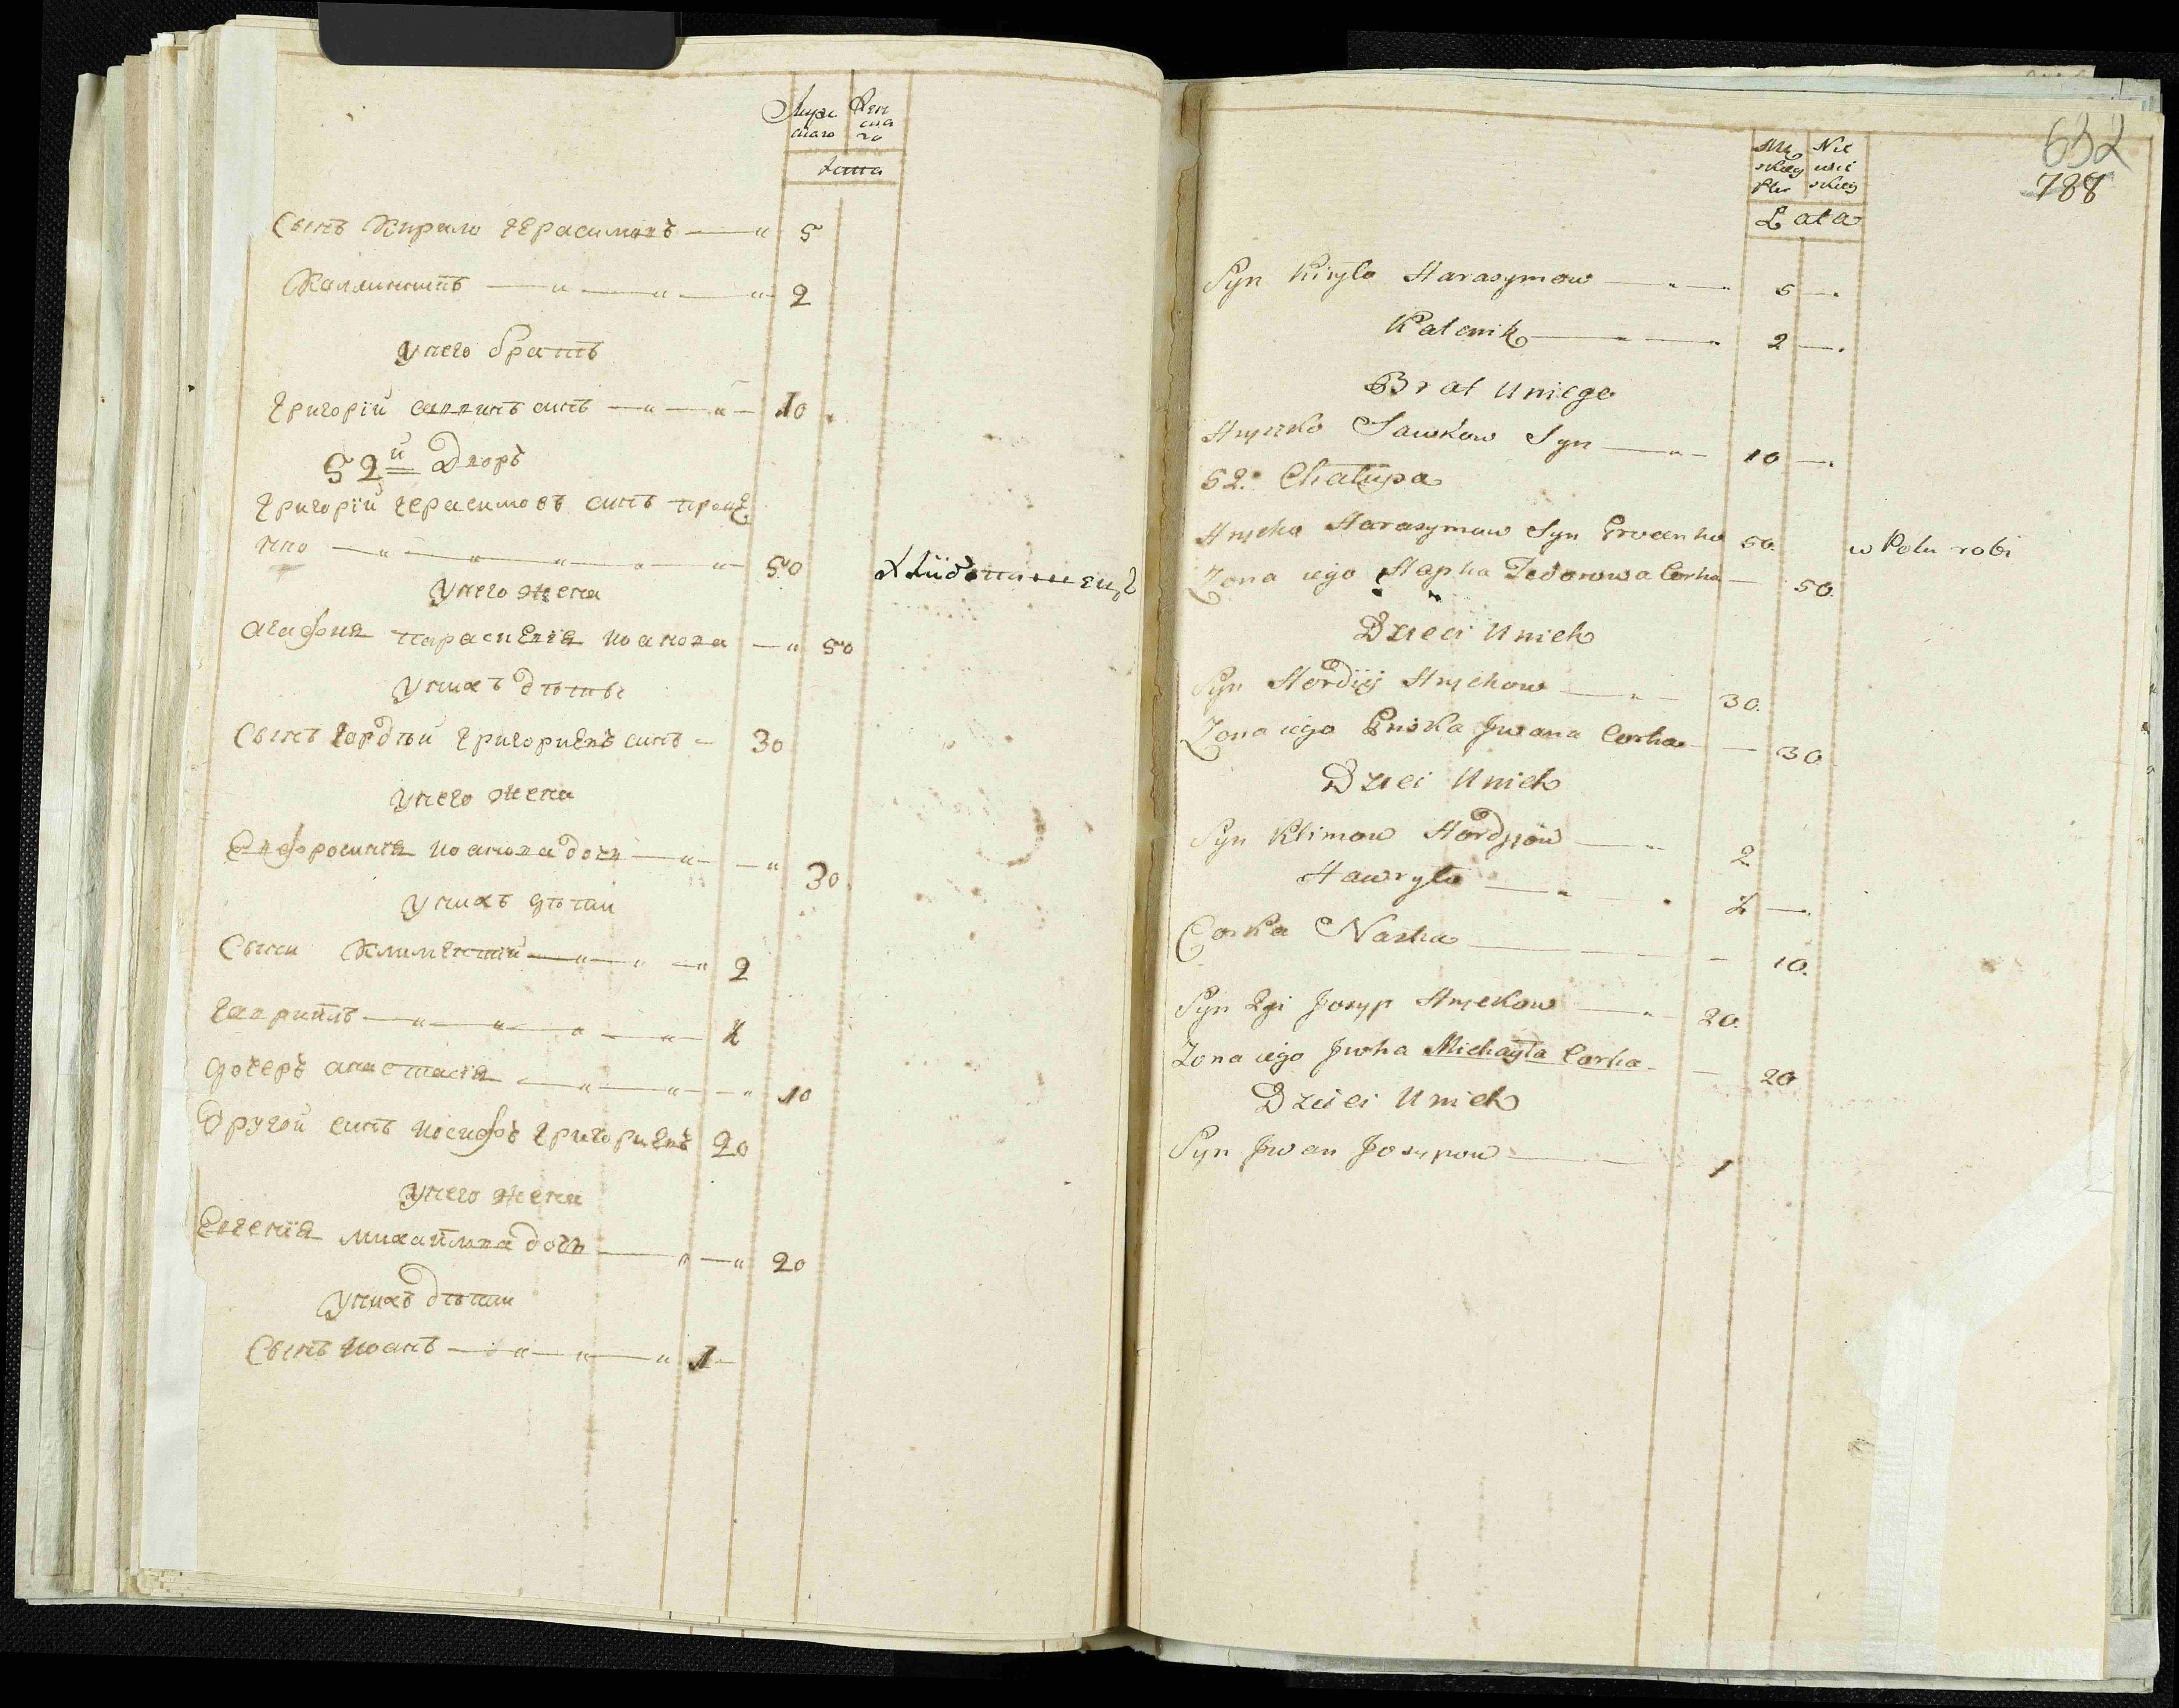 Мужс Женска
каго го
лета
Сынъ Кирило Герасимовъ — " 5
Каллиникъ — " — " — " 2
У него братъ
Григорій саввинъ синъ — " — " — 10
52й Дворъ
Григорій Герасимовъ синъ
нко — " — " — " — " — " 50 Хлибопашецъ
У него жена
Агафия иоанова — " 50
У нихъ дѣти
Сынъ Гордѣй Григориевъ синъ — 30
У него жена
Евфросиния иоанова дочь — " — " 30
У нихъ дѣти
Сыни Климентий — " — " — " 2
Гавриилъ — " — " — " — " 1
дочеръ анастасія — " — " — " 10
Другой синъ Иосифъ Григориевъ 20
У него жена
Евгенія михайлова дочь — " — " 20
У нихъ дѣти
Сынъ Иоанъ — " — " — " 1
632
788
Mę skiey Płci Nie wie skiey
Lata
Syn Kiryło Harasymow — 5 —
Kalenik — 2 —
Brat u niego
Hryćko Sawkow Syn — 10 —
52. Chałupa
Hryćko Harasymow Syn 50. w Polu robi
Zona iego Hapka Fedorowa Corka — 50.
Dzieci u nich
Syn Hordiy Hryćkow — 30.
Zona iego Pryśka Jwana Corka — 30
Dzieci u nich
Syn Klimow Hordyiow — 2
Hawryło — 1 —
Corka Nastia — 10.
Syn 2gi Josyp Hryćkow — 20.
Zona iego Jwha Michayła Corka — 20
Dzieci u nich
Syn Jwan Josypow — 1